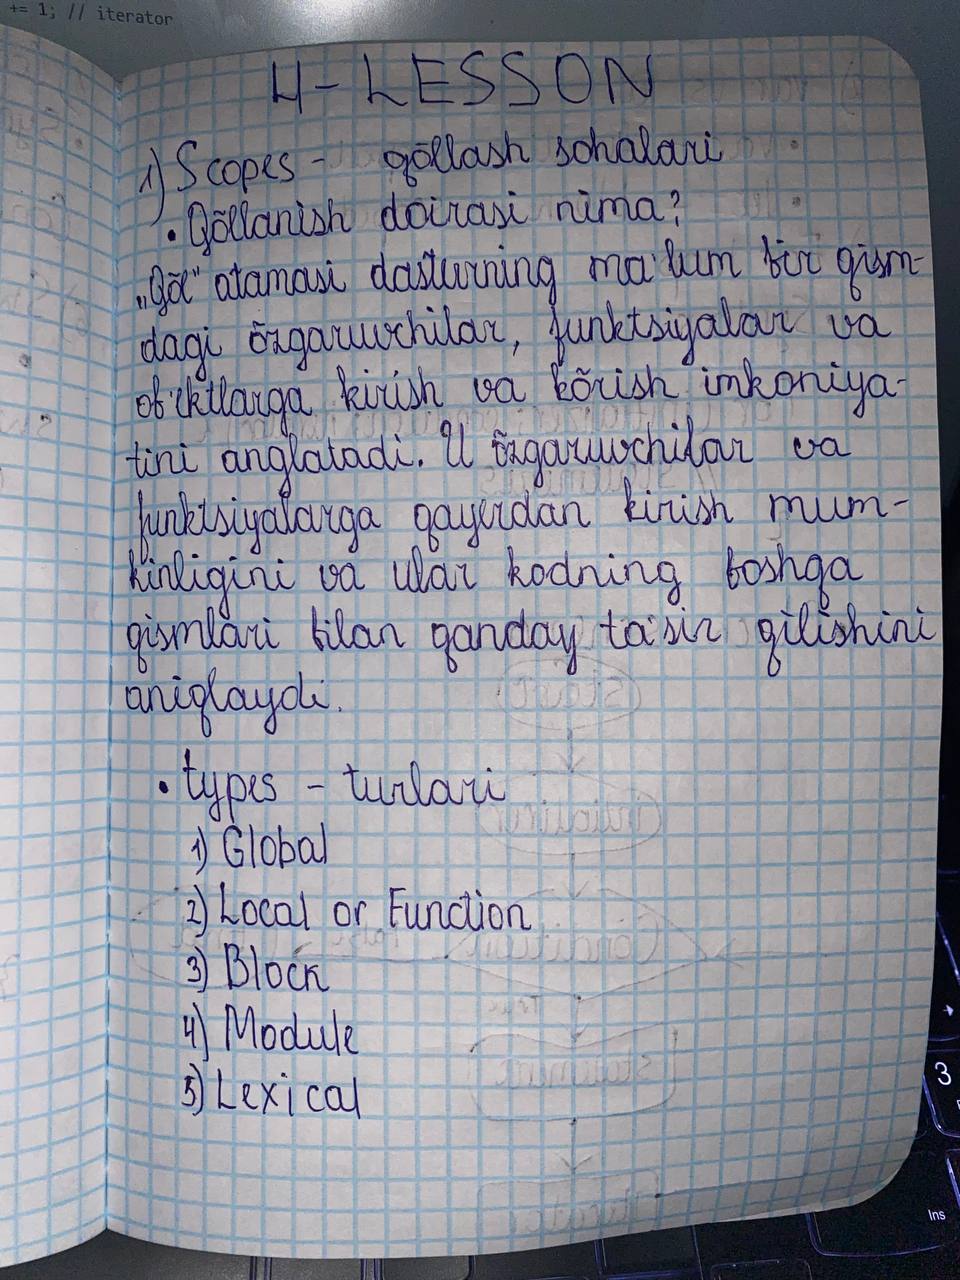 += 1; // iterator
4-LESSON
1) Scopes - qõllash sohalari
• Qõllanish doirasi nima?
„Qõl" atamasi dasturning ma'lum bir qism-
dagi õzgaruvchilar, funktsiyalar va
ob'ektlarga kirish va kõrish imkoniya-
tini anglatadi. U õzgaruvchilar va
funktsiyalarga qayerdan kirish mum-
kinligini va ular kodning boshqa
qismlari bilan qanday ta'sir qilishini
aniqlaydi.
• types - turlari
1) Global
2) Local or Function
3) Block
4) Module
5) Lexical
3
Ins